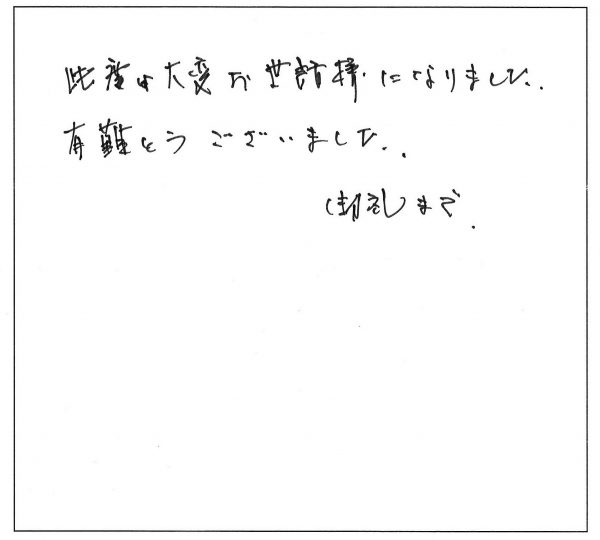 此度は大変お世話様になりました.
有難とうございました..
御礼まで.